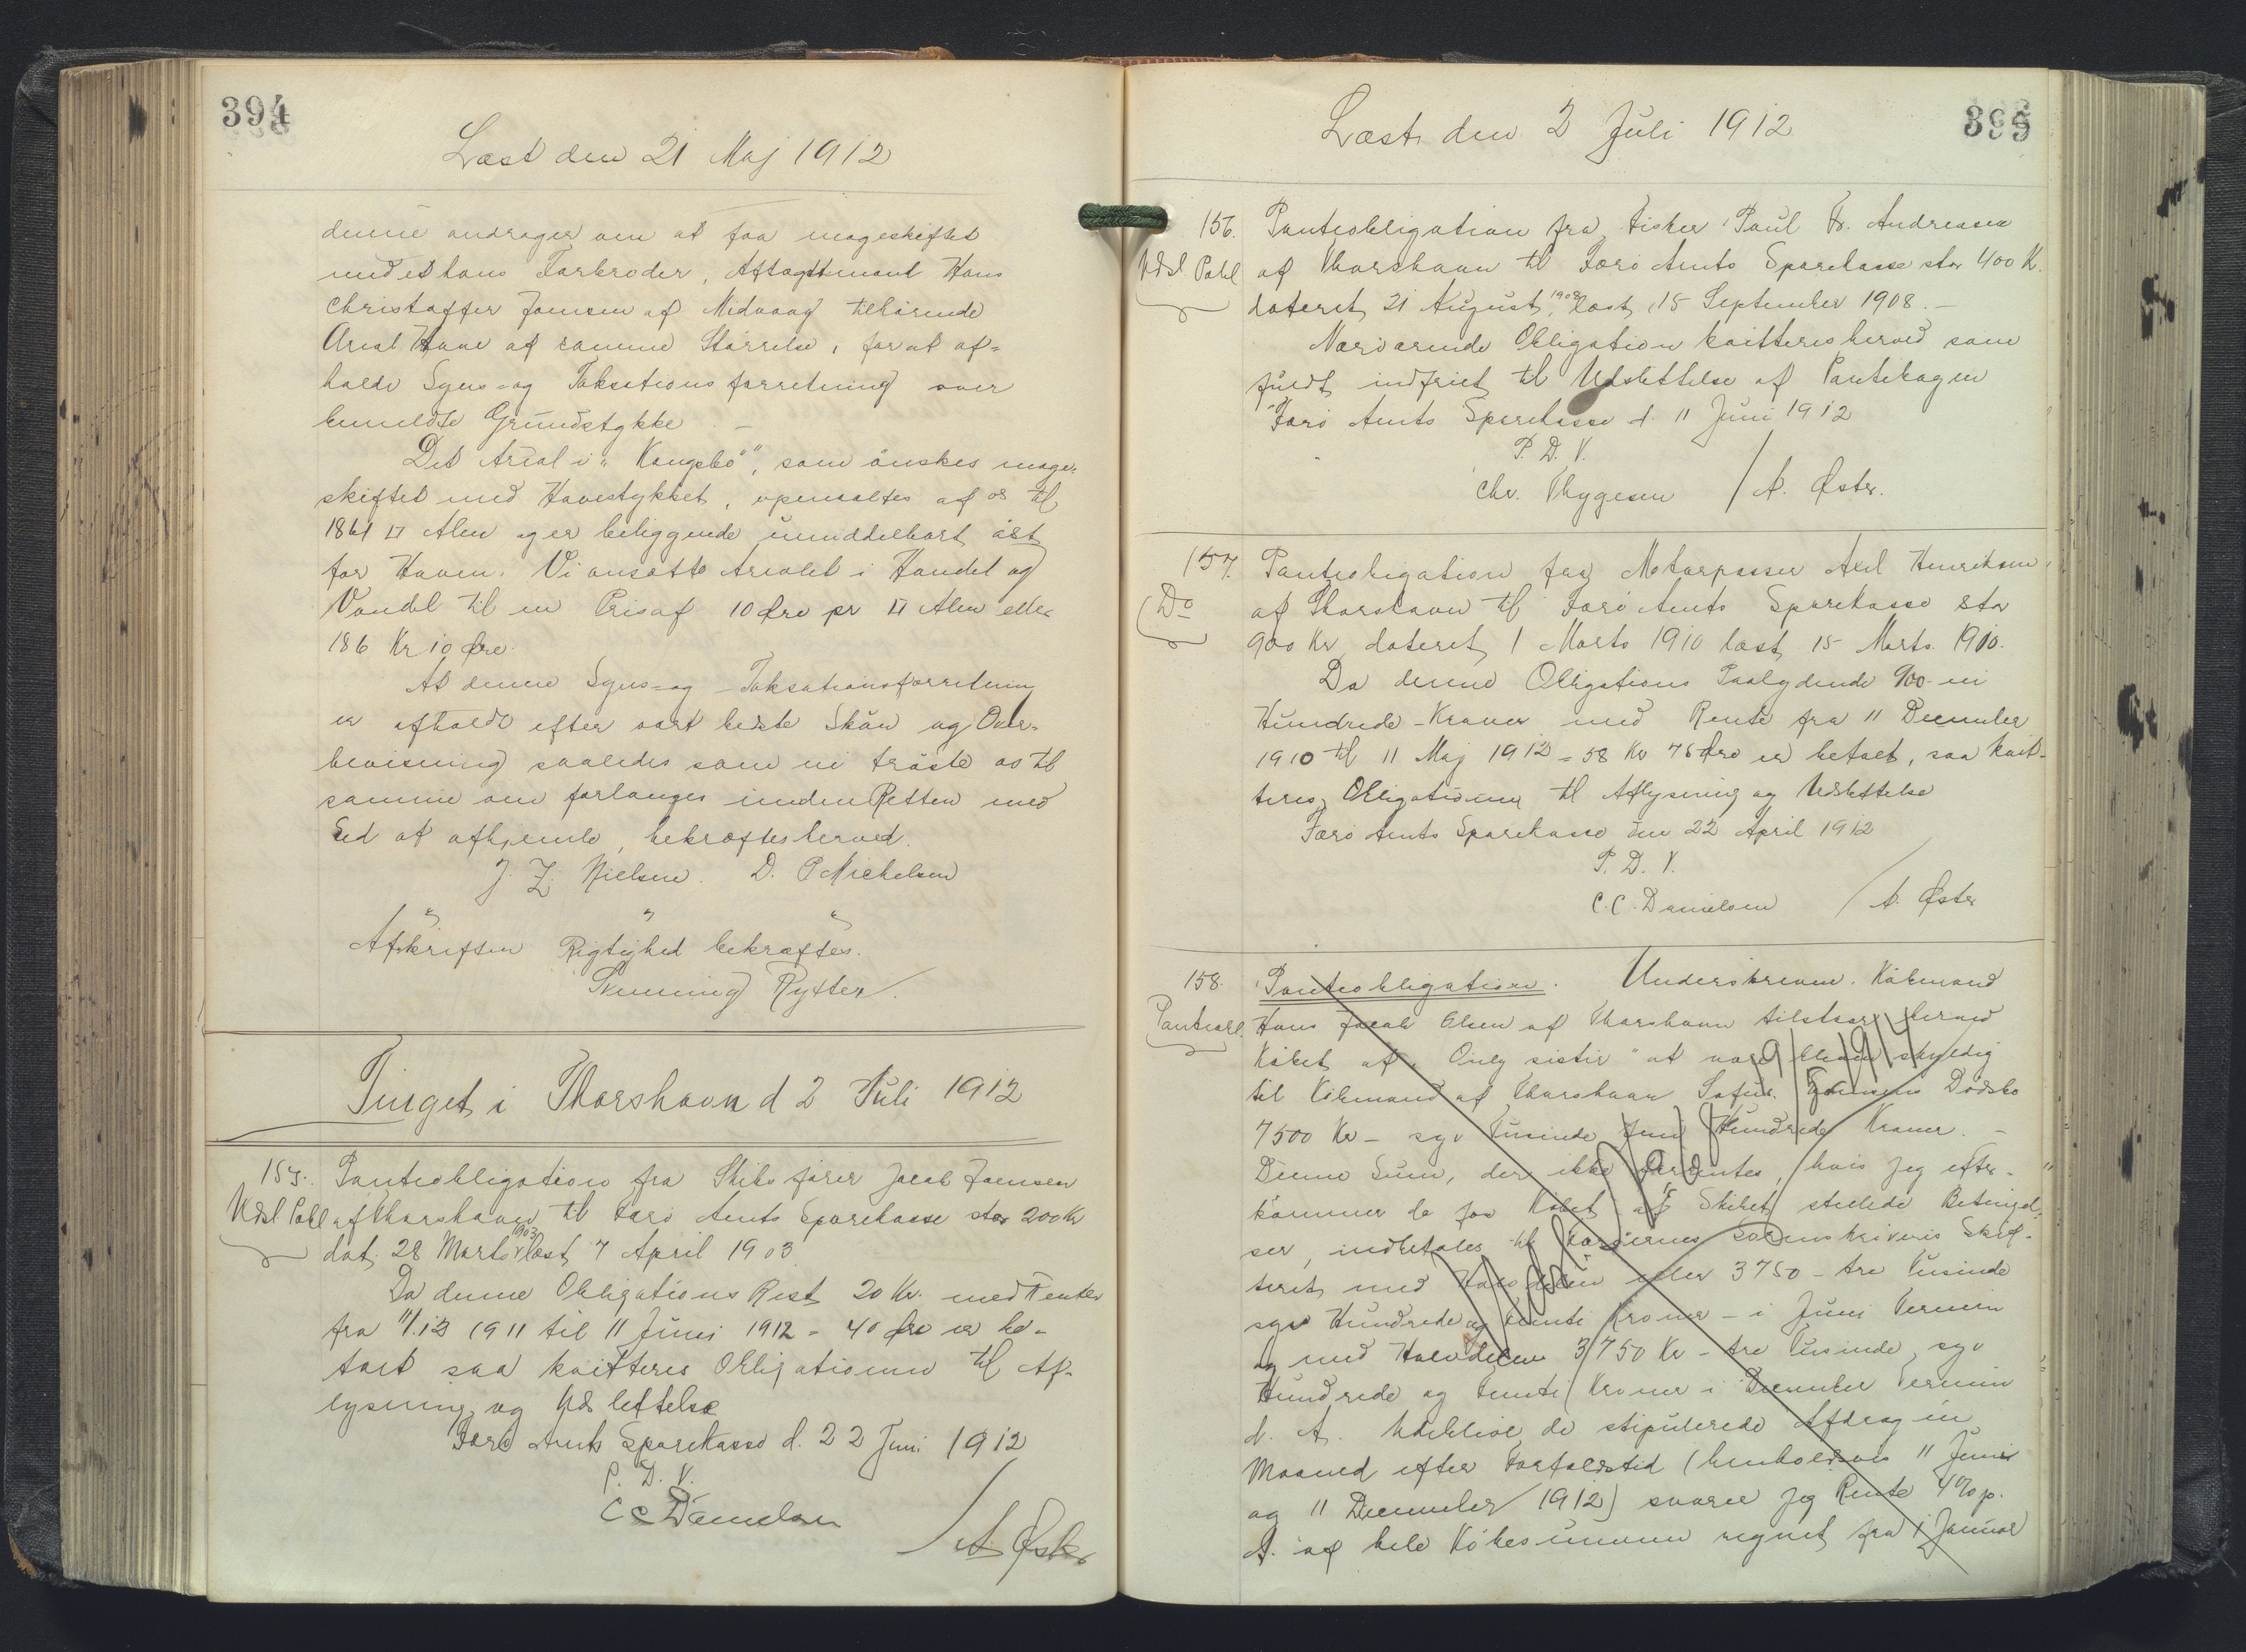 394
Læst den 21 Maj 1912
denne andrager om at faa mageskiftet
med et hans Farbroder, Aftægtsmand Hans
Christoffer Joensen af Midvaag tilhørende
Areal Have af samme Størrelse, for at af=
holde Syns- og Taksationsforretning over
bemeldte Grundstykke. –
Det Areal i "Kongsbø", som ønskes mage=
skiftet med Havestykket, opmaaltes af os til
1861 □ Alen og er beliggende umiddelbart øst
for Haven. Vi ansatte Arealet i Handel og
Vandel til en Pris af 10 Øre pr □ Alen eller
186 Kr 10 Øre.
At denne Syns- og Taksationsforretning
er afholdt efter vort bedste Skøn og Over-
bevisning saaledes som vi trøste os til
samme om forlanges inden Retten med
Ed at afhjemle, bekræftes herved.
J. Z. Nielsen. D. P Michelsen
" " "
Afskriftens Rigtighed bekræftes.
Flemming Rytter.
Tinget i Thorshavn d 2 Juli 1912
155. Panteobligation fra Skibsfører Jacob Joensen
Udsl Pobl af Thorshavn til Færø Amts Sparekasse stor 200 Kr
dat. 28 Marts 1903 læst 7 April 1903
Da denne Obligations Rest 20 Kr. med Renter
fra 11/12 1911 til 11 Juni 1912 = 40 Øre er be-
talt saa kvitteres Obligationen til Af-
lysning og Udslettelse
Færø Amts Sparekasse d. 22 Juni 1912
P. D. V.
C C Danielsen
/ A. Øster
395
Læst den 2 Juli 1912
156. Panteobligation fra Fisker Paul Fr. Andreasen
Udsl. Pobl af Thorshavn til Færø Amts Sparekasse stor 400 Kr.
dateret 21 August 1908, læst 15 September 1908. –
Nærværende Obligation kvitteres herved som
fuldt indfriet til Udslettelse af Pantebogen
Færø Amts Sparekasse d. 11 Juni 1912
P. D. V.
Chr. Thygesen / A. Øster.
157. Panteobligation fra Motorpasser Axel Henriksen
Do af Thorshavn til Færø Amts Sparekasse stor
900 Kr dateret 1 Marts 1910 læst 15 Marts 1910.
Da denne Obligations Paalydende 900 ni
Hundrede Kroner med Rente fra 11 December
1910 til 11 Maj 1912 = 58 Kr 76 Øre er betalt, saa kvit-
teres Obligationen til Aflysning og Udslettelse
Færø Amts Sparekasse den 22 April 1912
P. D. V.
C. C. Danielsen / A. Øster
158. Panteobligation. Underskreven. Købmand
Panteobl. Hans Jacob Olsen af Thorshavn tilstaar herved
Købet af "Only sister" at være bleven skyldig
til Købmand af Thorshavn Sofus Joensens Dødsbo
7500 Kr – syv Tusinde fem Hundrede Kroner. –
Denne Sum, der ikke forrentes, hvis jeg efter-
kommer de for Købet af Skibet stillede Betingel-
ser, indbetales til Færøernes Sorenskriveris Skif-
teret med Halvdelen eller 3750 – tre Tusinde
syv Hundrede og femti Kroner – i Juni Termin
og med Halvdelen 3750 Kr – tre Tusinde syv
Hundrede og femti Kroner i December Termin
d. A. Udeblive de stipulerede Afdrag en
Maaned efter Forfaldstid (henholdsvis 11 Juni
og 11 December 1912) svarer jeg Rente 4% p.
A. af hele Købesummen regnet fra 1 Januar